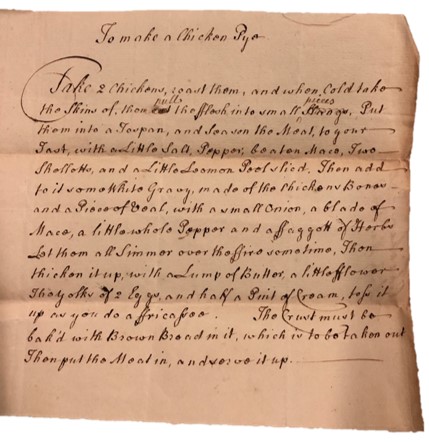 To make a Chicken Pye
Take 2 Chickens, roast them, and when Cold take
the Skins of, then pull the flesh into small pieces, Put
them into a Tospan, and Season the Meat, to your
Tast, with a Little Salt, Pepper, beaten Mace, Two
Shellotts, and a Little Leomon Peel slied. Then add
to it som white Gravy, made of the Chickens Bones
and a Piece of Veal, with a small Onion, a blade of
Mace, a little whole Pepper and a ffaggott of Herbs
Let them all Simmer over the ffire sometime, Then
thicken it up, with a Lump of Butter, a little fflower
The yolks of 2 Eggs, and half a Pint of Cream, toss it
up as you do a ffricassee. The Crust must be
bak'd with Brown Bread in it, which is to be taken out
Then put the Meat in, and serve it up.